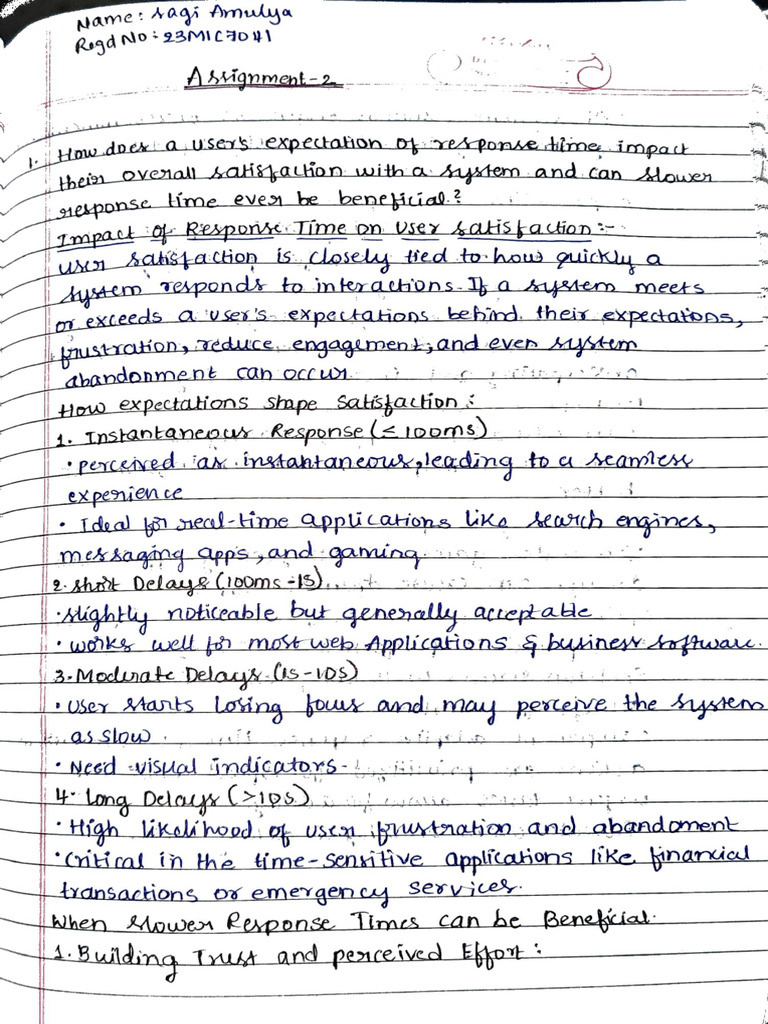 Name: Sagi Amulya
Regd No: 23MIC7041
Assignment-2
1. How does a user's expectation of response time impact
their overall satisfaction with a system and can slower
response time ever be beneficial?
Impact of Response Time on User Satisfaction:-
User satisfaction is closely tied to how quickly a
system responds to interactions. If a system meets
or exceeds a user's expectations behind their expectations,
frustration, reduce engagement, and even system
abandonment can occur.
How expectations shape Satisfaction:
1. Instantaneous Response (≤100ms)
• perceived as instantaneous, leading to a seamless
experience
• Ideal for real-time applications like search engines,
messaging apps, and gaming.
2. Short Delays (100ms-1s)
• slightly noticeable but generally acceptable
• works well for most web Applications & business software.
3. Moderate Delays (1s-10s)
• User starts losing focus and may perceive the system
as slow.
• Need visual indicators.
4. Long Delays (>10s)
• High likelihood of user frustration and abandoment
• Critical in the time-sensitive applications like financial
transactions or emergency services.
When slower Response Times can be Beneficial.
1. Building Trust and perceived Effort: